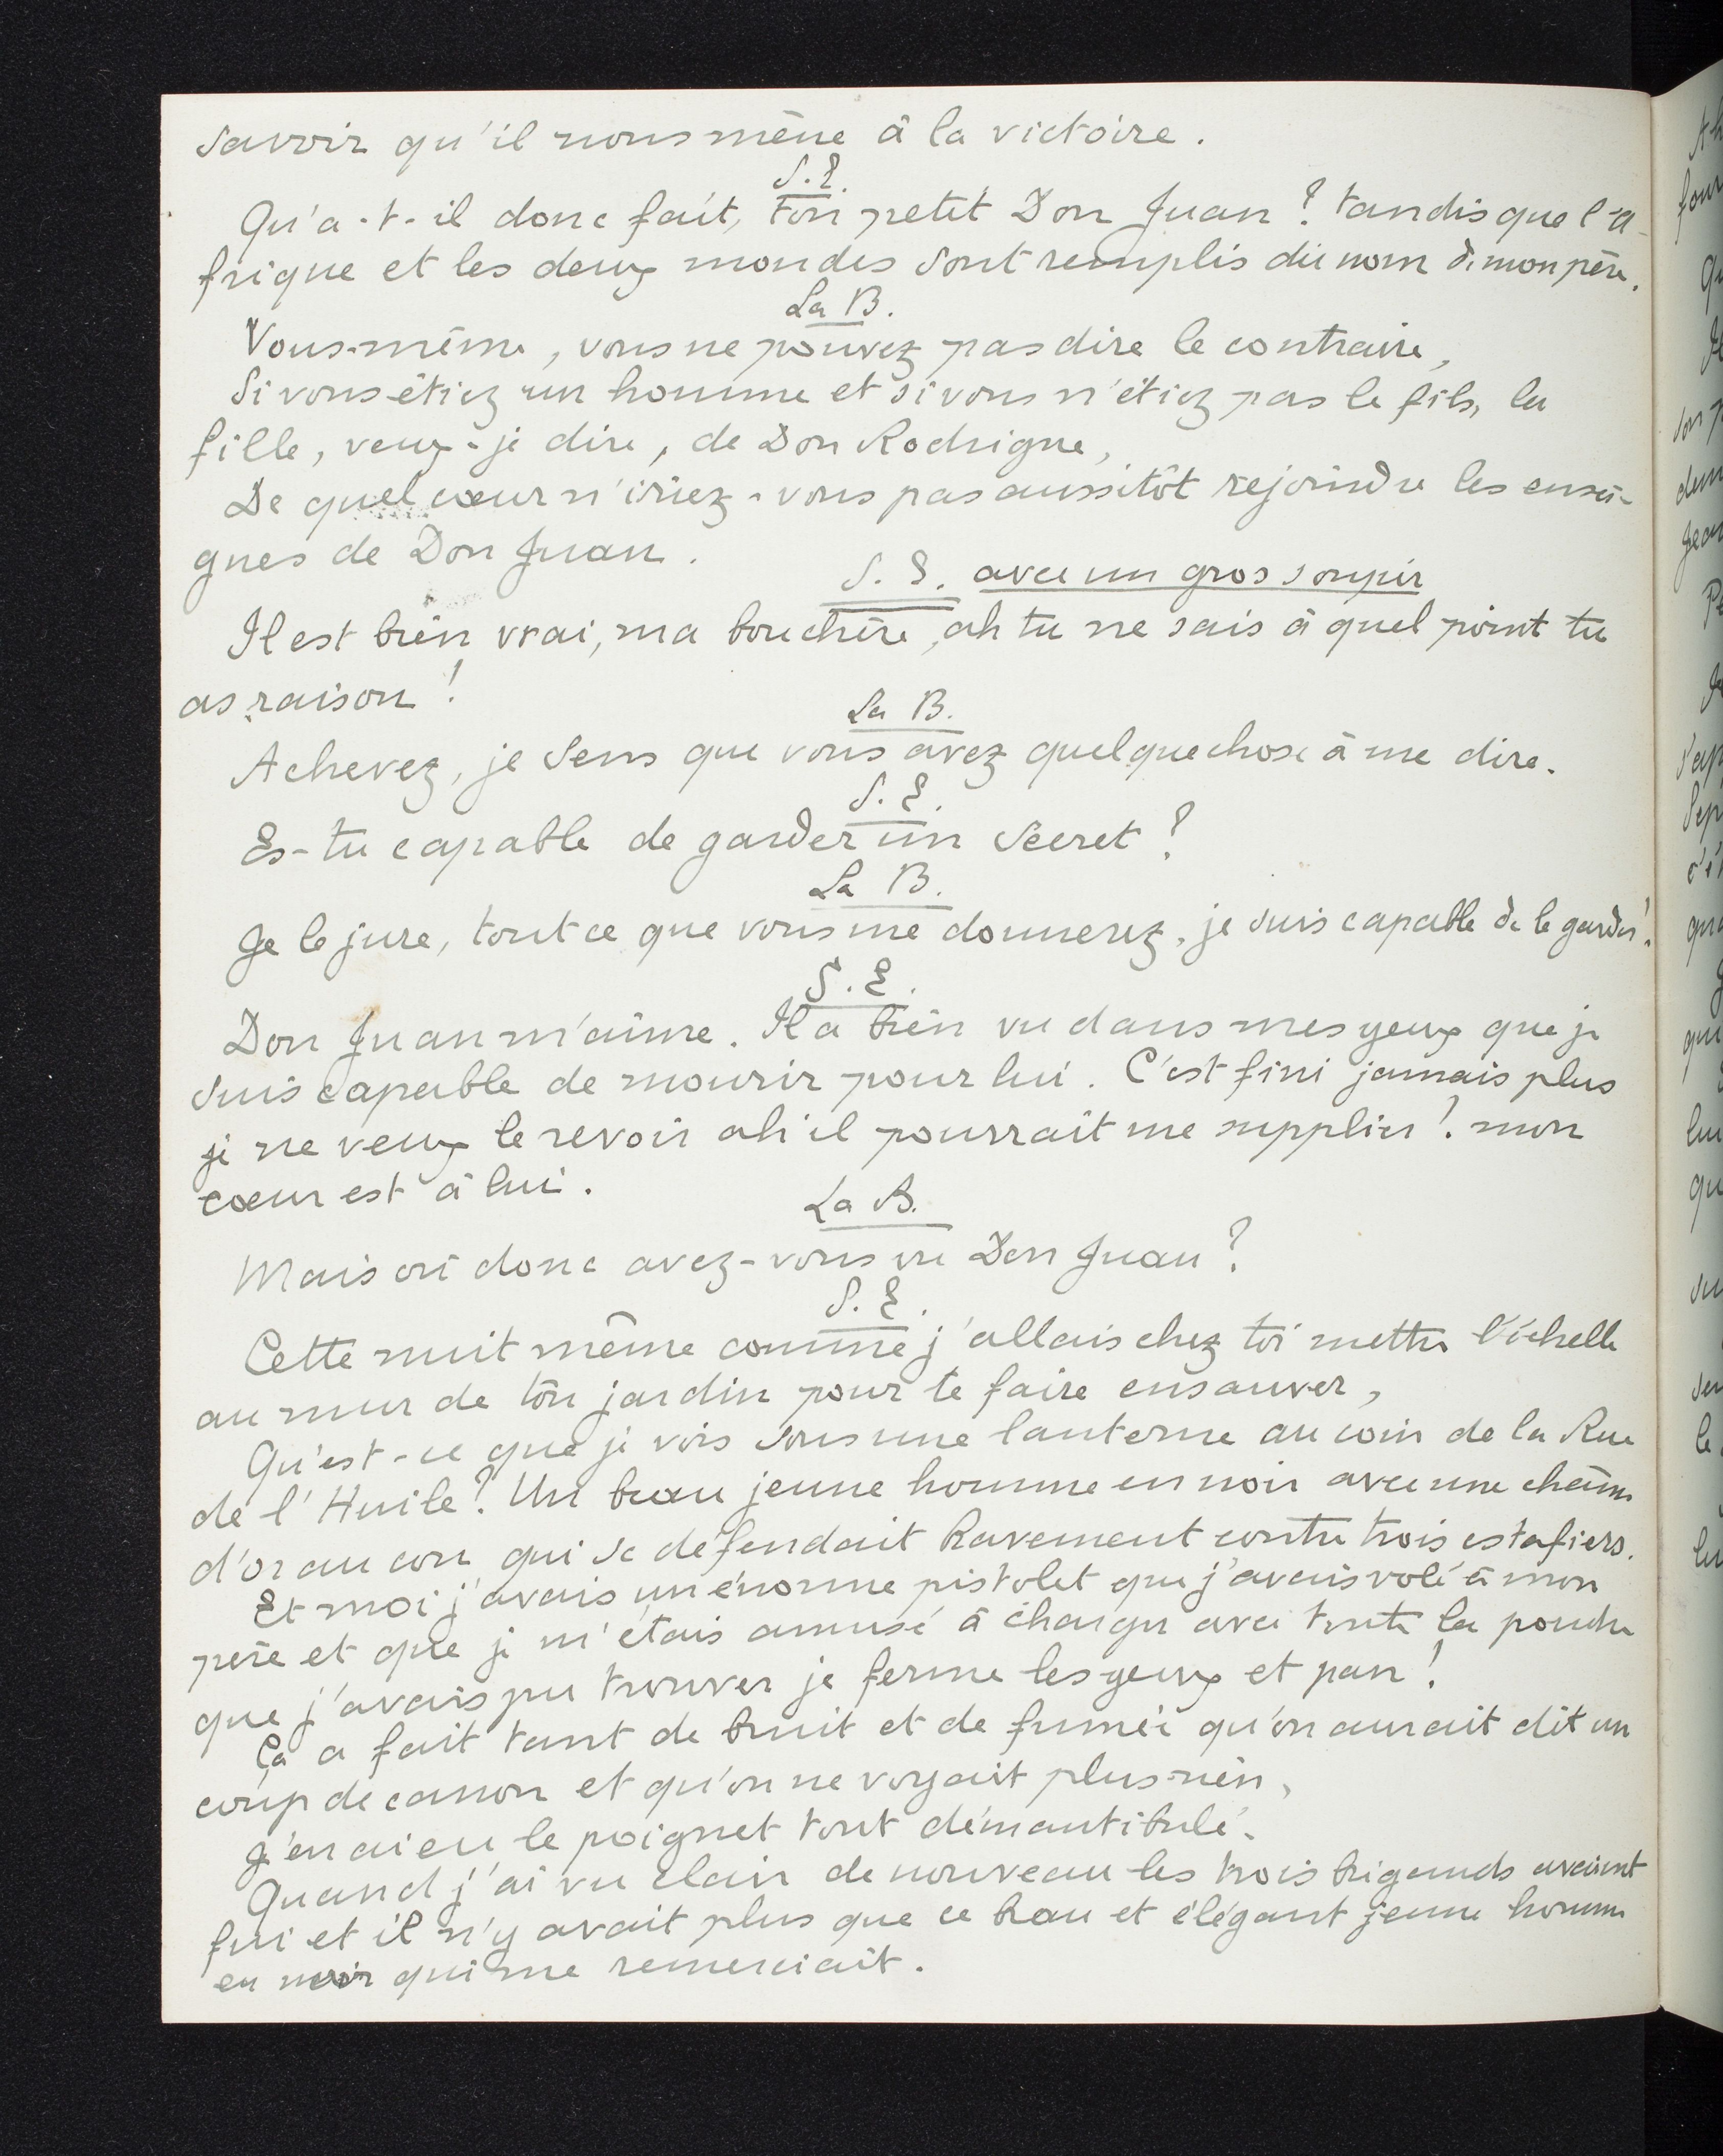 savoir qu'il nous mène à la victoire.
S. E.
Qu'a-t-il donc fait, ton petit Don Juan ? tandis que l'A-
frique et les deux mondes sont remplis du nom de mon père.
La B.
Vous-même, vous ne pouvez pas dire le contraire,
Si vous étiez un homme et si vous n'étiez pas le fils, la
fille, veux-je dire, de Don Rodrigue,
De quel cœur n'iriez-vous pas aussitôt rejoindre les ensei-
gnes de Don Juan.
S. E. avec un gros soupir
Il est bien vrai, ma bouchère, ah tu ne sais à quel point tu
as raison !
La B.
Achevez, je sens que vous avez quelque chose à me dire.
S. E.
Es-tu capable de garder un secret ?
La B.
Je le jure, tout ce que vous me donnerez, je suis capable de le garder !
S. E.
Don Juan m'aime. Il a bien vu dans mes yeux que je
suis capable de mourir pour lui. C'est fini jamais plus
je ne veux le revoir ah il pourrait me supplier ! mon
cœur est à lui.
La B.
Mais où donc avez-vous vu Don Juan ?
S. E.
Cette nuit même comme j'allais chez toi mettre l'échelle
au mur de ton jardin pour te faire ensauver,
Qu'est-ce que je vois sous une lanterne au coin de la Rue
de l'Huile ? Un beau jeune homme en noir avec une chaîne
d'or au cou qui se défendait bravement contre trois estafiers.
Et moi j'avais un énorme pistolet que j'avais volé à mon
père et que je m'étais amusé à charger avec toute la poudre
que j'avais pu trouver je ferme les yeux et pan !
Ça a fait tant de bruit et de fumée qu'on aurait dit un
coup de canon et qu'on ne voyait plus rien,
J'en ai eu le poignet tout démantibulé.
Quand j'ai vu clair de nouveau les trois brigands avaient
fui et il n'y avait plus que ce beau et élégant jeune homme
en noir qui me remerciait.